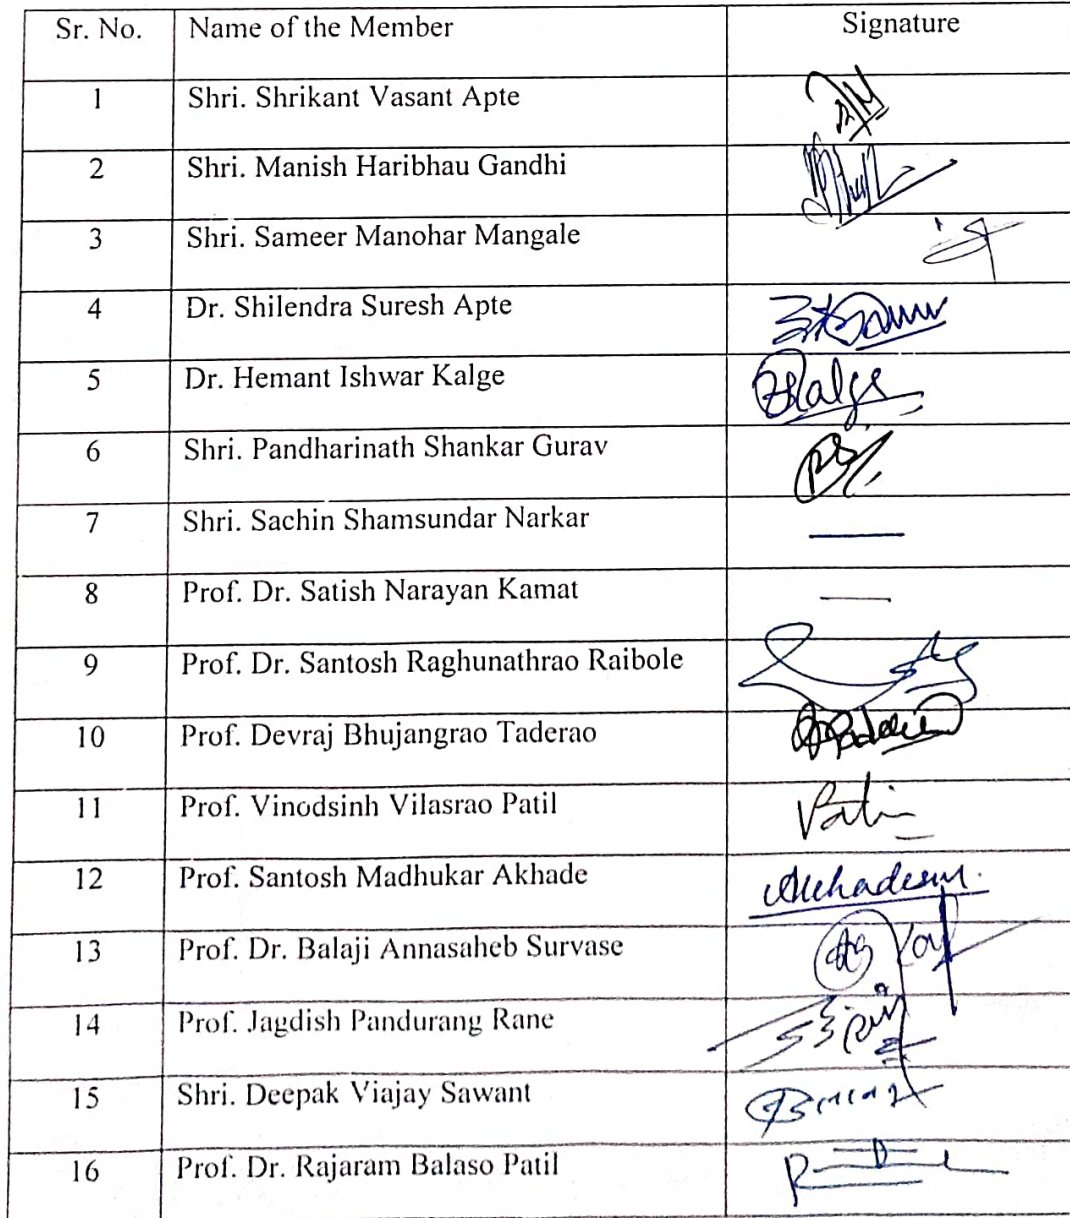 Sr. No. Name of the Member Signature
1 Shri. Shrikant Vasant Apte
2 Shri. Manish Haribhau Gandhi
3 Shri. Sameer Manohar Mangale
4 Dr. Shilendra Suresh Apte
5 Dr. Hemant Ishwar Kalge
6 Shri. Pandharinath Shankar Gurav
7 Shri. Sachin Shamsundar Narkar
8 Prof. Dr. Satish Narayan Kamat
9 Prof. Dr. Santosh Raghunathrao Raibole
10 Prof. Devraj Bhujangrao Taderao
11 Prof. Vinodsinh Vilasrao Patil
12 Prof. Santosh Madhukar Akhade
13 Prof. Dr. Balaji Annasaheb Survase
14 Prof. Jagdish Pandurang Rane
15 Shri. Deepak Viajay Sawant
16 Prof. Dr. Rajaram Balaso Patil